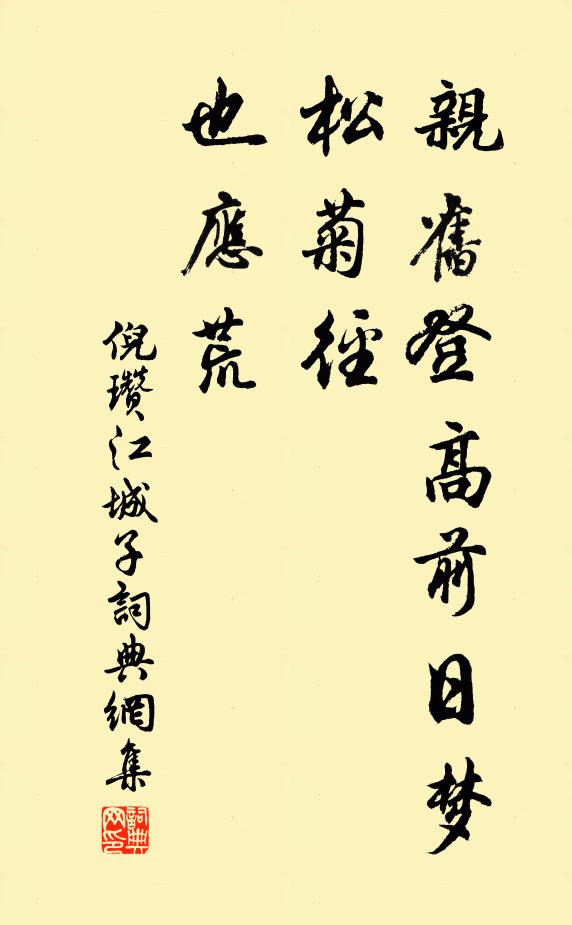 親舊登高前日梦
松菊徑
也應荒
倪瓚江城子詞典網集
詞典网印